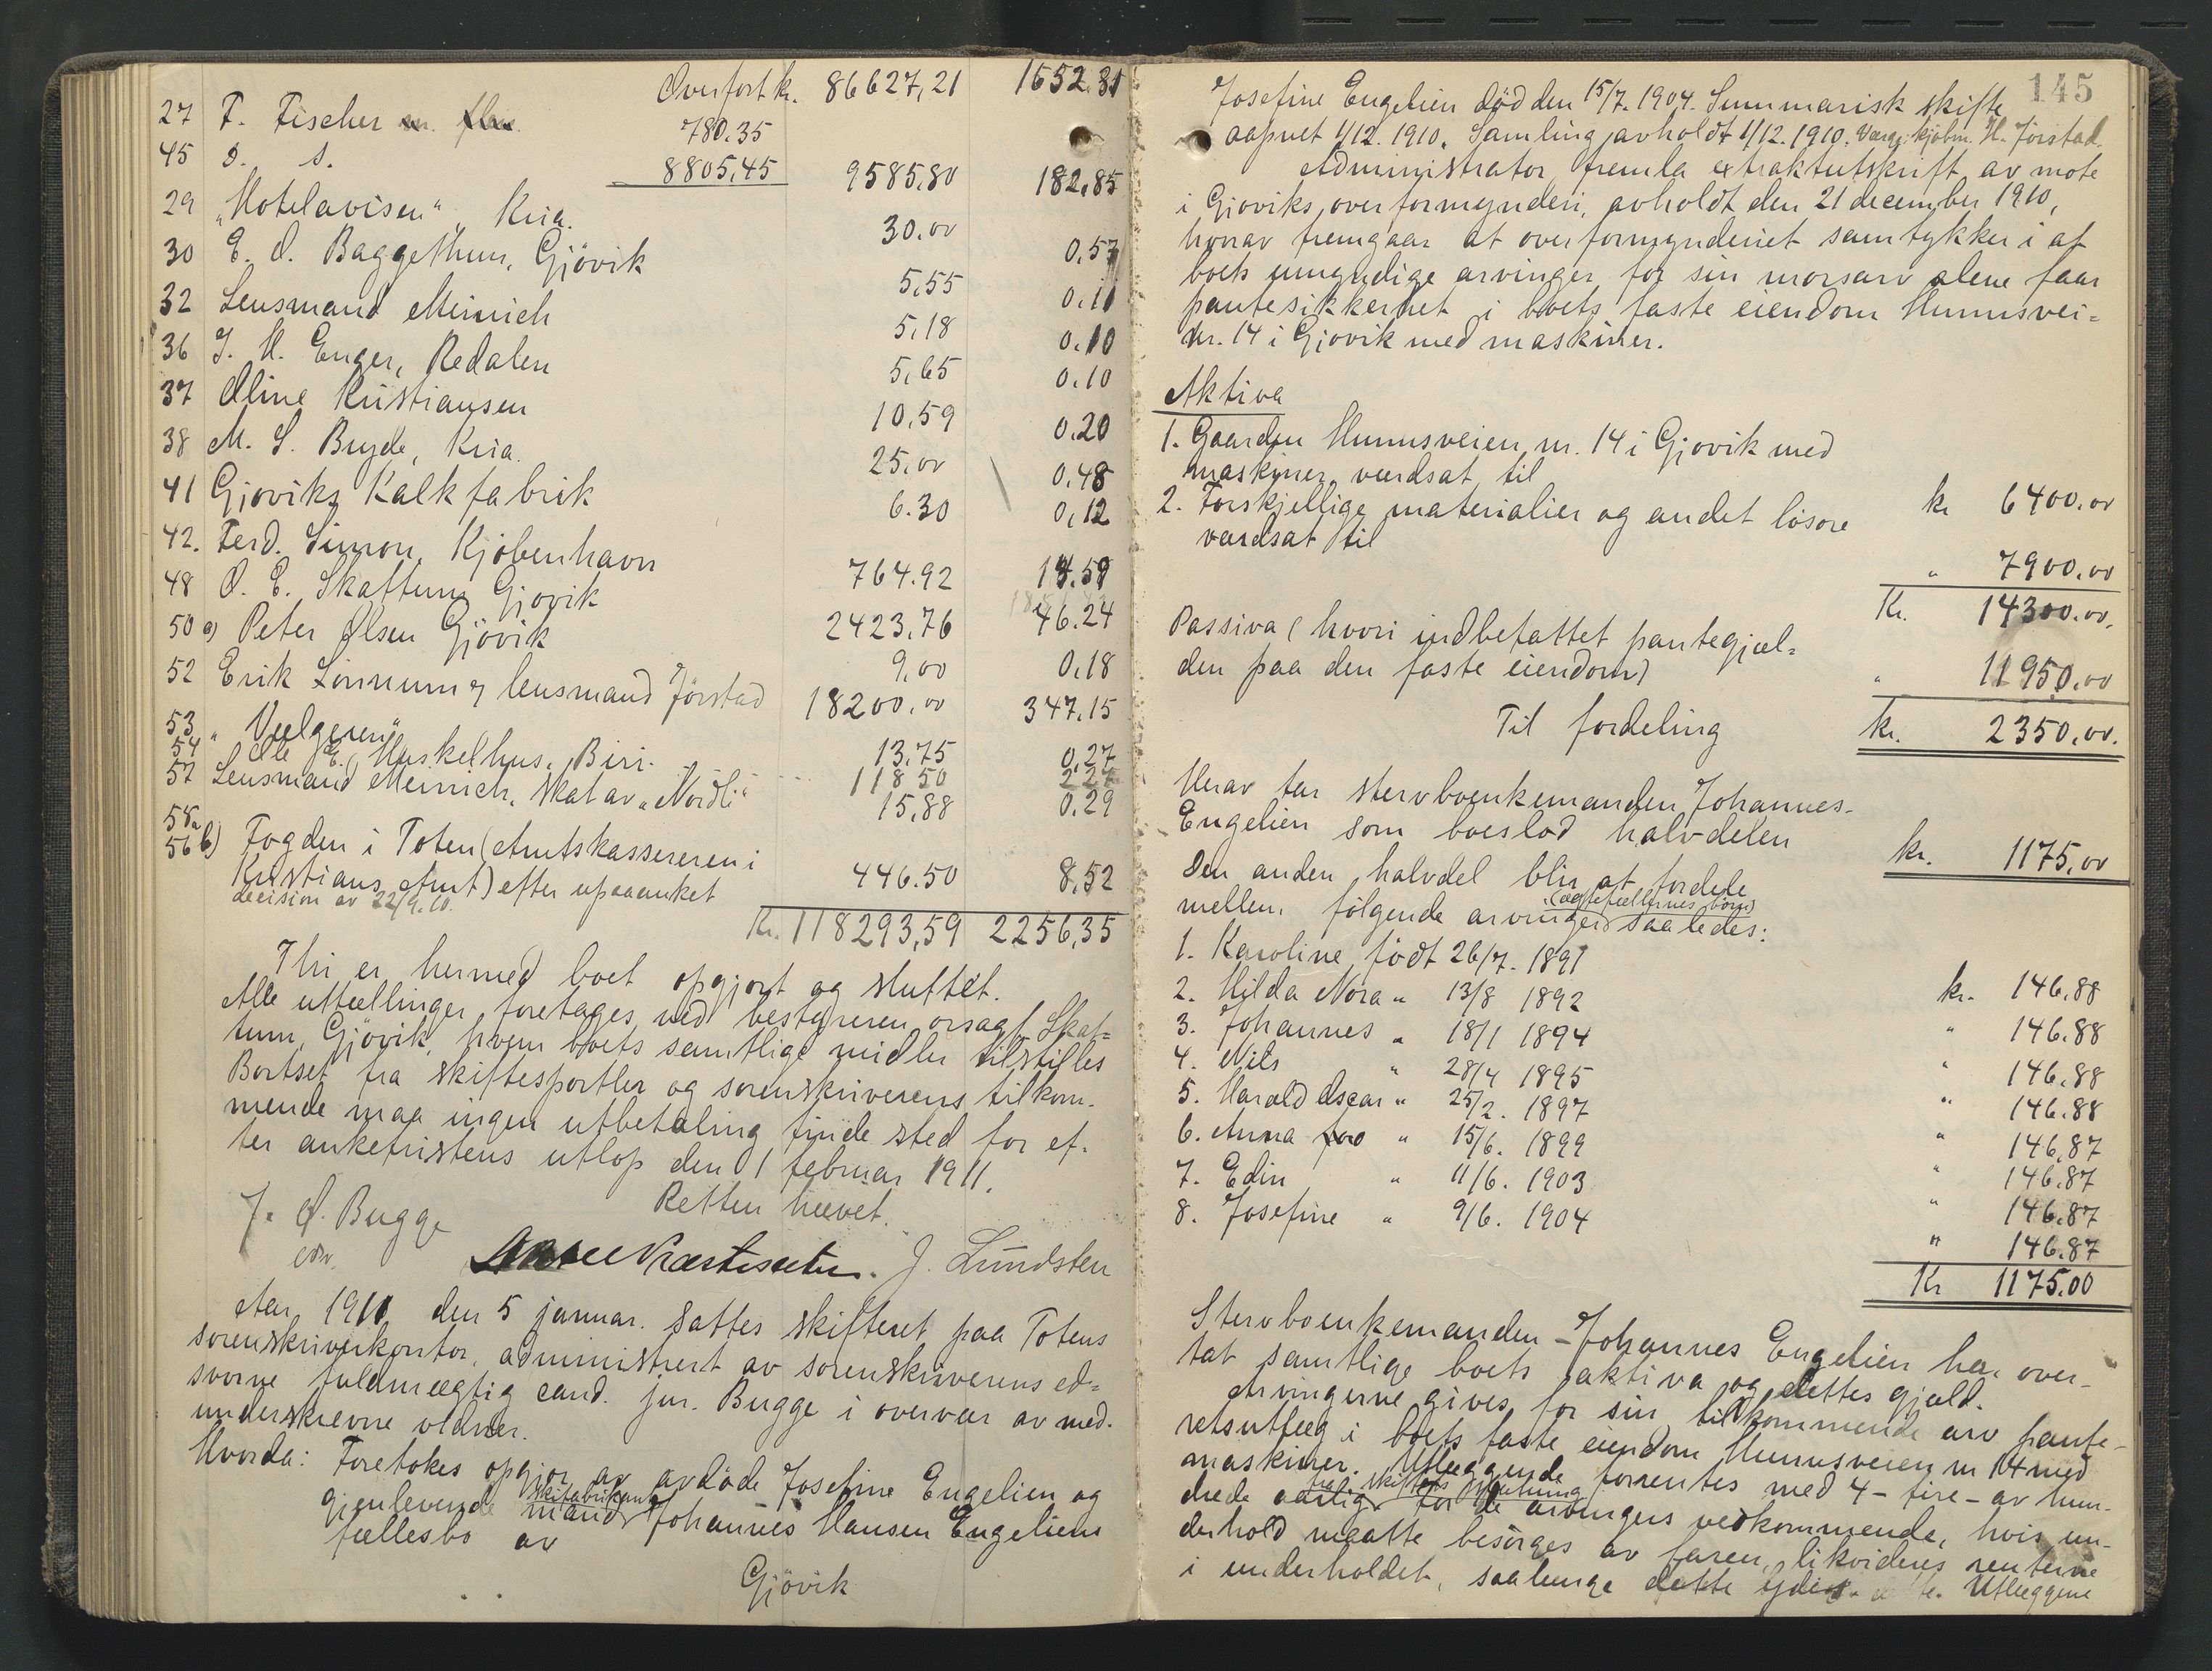 Overført kr. 86627,21 1652.81
27 F. Fischer
780.35
45 d. s.
8805,45 9585,80 182,85
29 "Hotelavisen", Kria. 30.00 0,57
30 E. O. Baggethun, Gjøvik 5,55 0.11
32 Lensmand Meinich 5,18 0.10
36 J. H. Enger, Redalen 5,65 0.10
37 Oline Kristiansen 10,59 0.20
38 M. S. Bryde, Kria. 25.00 0.48
41 Gjøviks Kalkfabrik 6.30 0,12
42. Ferd. Simon, Kjøbenhavn 764.92 14.59
48 O. E. Skattum Gjøvik 2423,76 46.24
50 a) Peter Olsen Gjøvik 9,00 0,18
52 Erik Lønnum og lensmand Jørstad 18200.00 347.15
53 "Vælgeren" 13,75 0,27
54 Ole E. Haskelhus, Biri. 118 50 2 27
57 Lensmand Meinich, skat av "Nordli" 15,88 0.29
58a
56 b) Fogden i Toten (Amtskassereren i
Kristians Amt) efter upaaanket 446.50 8,52
decision av 22/9.10.
Kr. 118293,59 2256,35
Thi er hermed boet opgjort og sluttet.
Alle uttællinger foretages ved bestyreren, orsagf. Skat-
tum, Gjøvik, hvem boets samtlige midler tilstilles
Bortset fra skiftesportler og sorenskriverens tilkom-
mende maa ingen utbetaling finde sted før ef-
ter ankefristens utløp den 1 februar 1911.
Retten hævet.
J. Ø. Bugge
edsv.
J. Lundsten
Aar 1911 den 5 januar. sattes skifteret paa Totens
sorenskriverkontor, administrert av sorenskriverens ed-
svorne fuldmægtig cand. jur. Bugge i overvær av med-
underskrevne vidner.
Hvorda: Foretokes opgjør av avdøde Josefine Engelien og
skifabrikant
gjenlevende mand Johannes Hansen Engeliens
fællesbo av
Gjøvik
145
Josefine Engelien død den 15/7. 1904. Summarisk skifte
aapnet 1/12. 1910. Samling avholdt 1/12. 1910. Værge: kjøbm. H. Jørstad.
Administrator fremla extraktutskrift av møte
i Gjøviks overformynderi, avholdt den 21 december 1910,
hvorav fremgaar at overformynderiet samtykker i at
boets umyndige arvinger for sin morsarv alene faar
pantesikkerhet i boets faste eiendom Hunnsvei-
nr. 14 i Gjøvik med maskiner.
Aktiva
1. Gaarden Hunnsveien nr. 14 i Gjøvik med
maskiner værdsat til kr 6400.00
2. Forskjellige materialier og andet løsøre
værdsat til " 7900.00
Kr. 14300.00.
Passiva (hvori indbefattet pantegjæl-
den paa den faste eiendom) " 11950.00
Til fordeling kr. 2350,00.
Herav tar stervboenkemanden Johannes
Engelien som boeslod halvdelen kr. 1175,00
Den anden halvdel blir at fordele
(ægtefællernes børn)
mellem følgende arvinger saaledes:
1. Karoline født 26/7. 1891 kr. 146.88
2. Hilda Nora " 13/8 1892 " 146.88
3. Johannes " 18/1 1894 " 146.88
4. Nils " 28/4 1895 " 146.88
5. Harald Oscar " 25/2. 1897 " 146.87
6. Anna " 15/6. 1899 " 146.87
7. Edin " 11/6. 1903 " 146.87
8. Josefine " 9/6. 1904 " 146.87
Kr 1175.00
Stervboenkemanden Johannes Engelien har over-
tat samtlige boets aktiva og dettes gjæld.
Arvingerne gives for sin tilkommende arv pante-
retsutlæg i boets faste eiendom Hunnsveien nr 14 med
maskiner. Utlæggende forrentes med 4 - fire - av hun-
fra skiftets slutning
drede aarlig. For de arvingers vedkommende, hvis un-
derhold maatte besørges av faren, likvideres renterne
i underholdet, saalenge dette ydes. Utlæggene